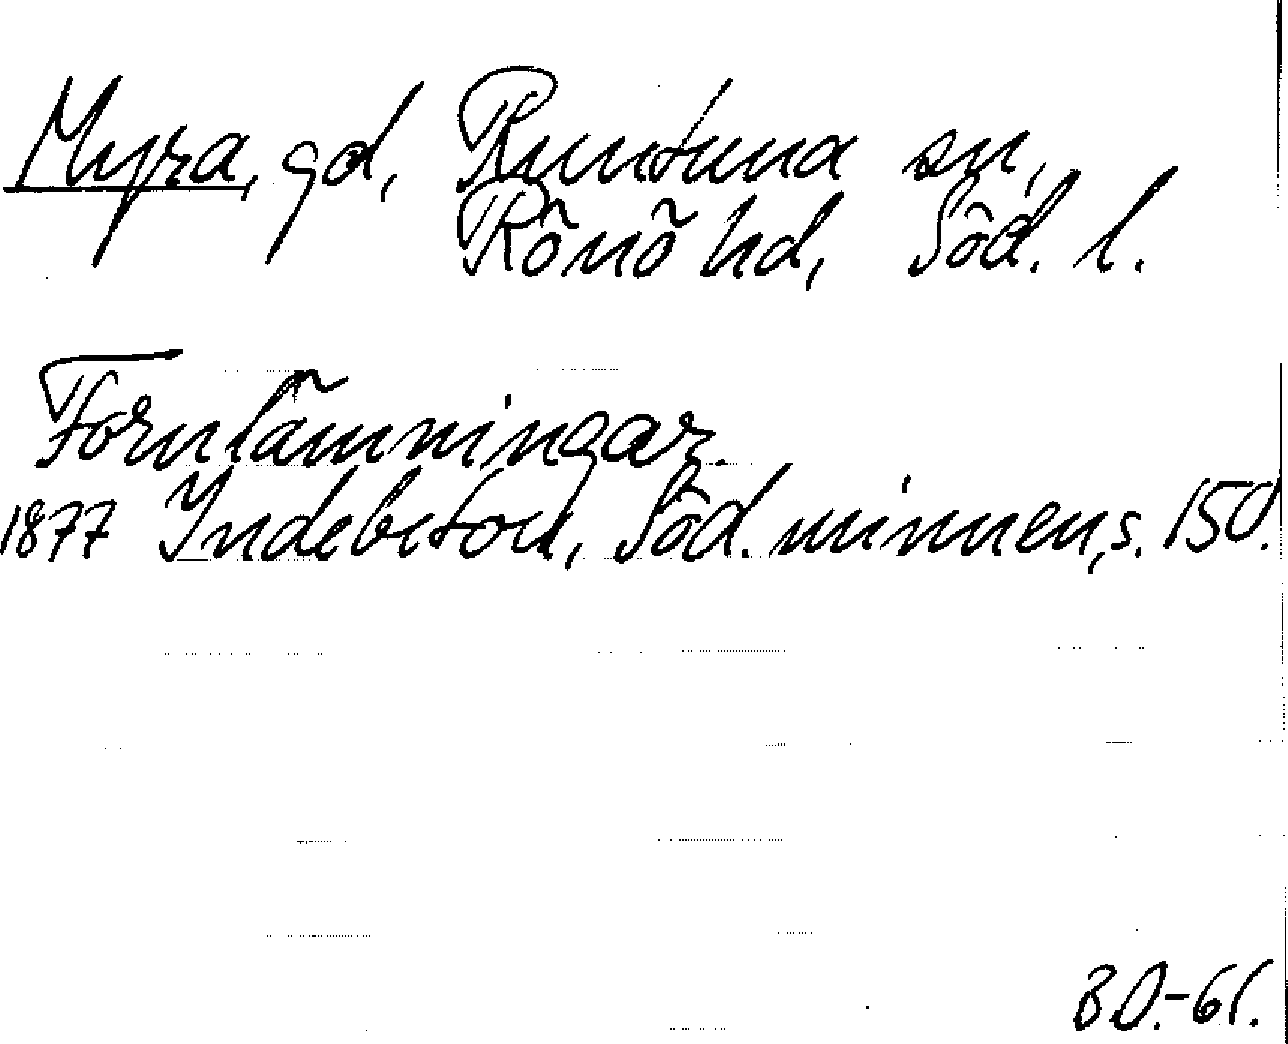 Myra, gd, Runtuna sn,
Rönö hd, Söd. l.
Fornlämningar.
1877 Indebetou, Söd. minnen, s. 150.
B.O.-61.